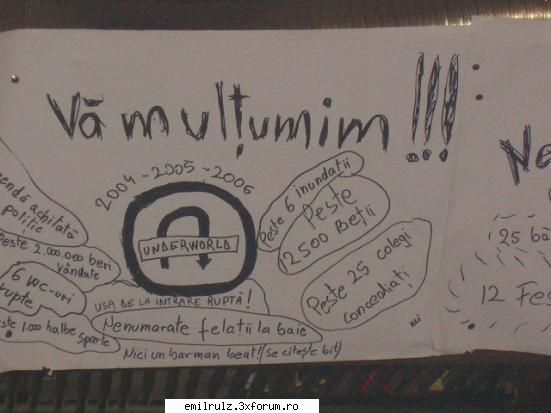 Vă mulțumim !!!
Ne
2004-2005-2006
UNDERWORLD
endă achitată
poliție
Peste 2.000.000 beri
vândute
6 WC-uri
rupte
Peste 6 inundatii
Peste
12500 Beții
Peste 25 colegi
concediați
25 bă
12 Fes
USA DE LA INTRARE RUPTĂ!
ste 1.000 halbe sparte
Nenumarate felații la baie
Nici un barman beat! (se citește bit)
emilrulz.3xforum.ro